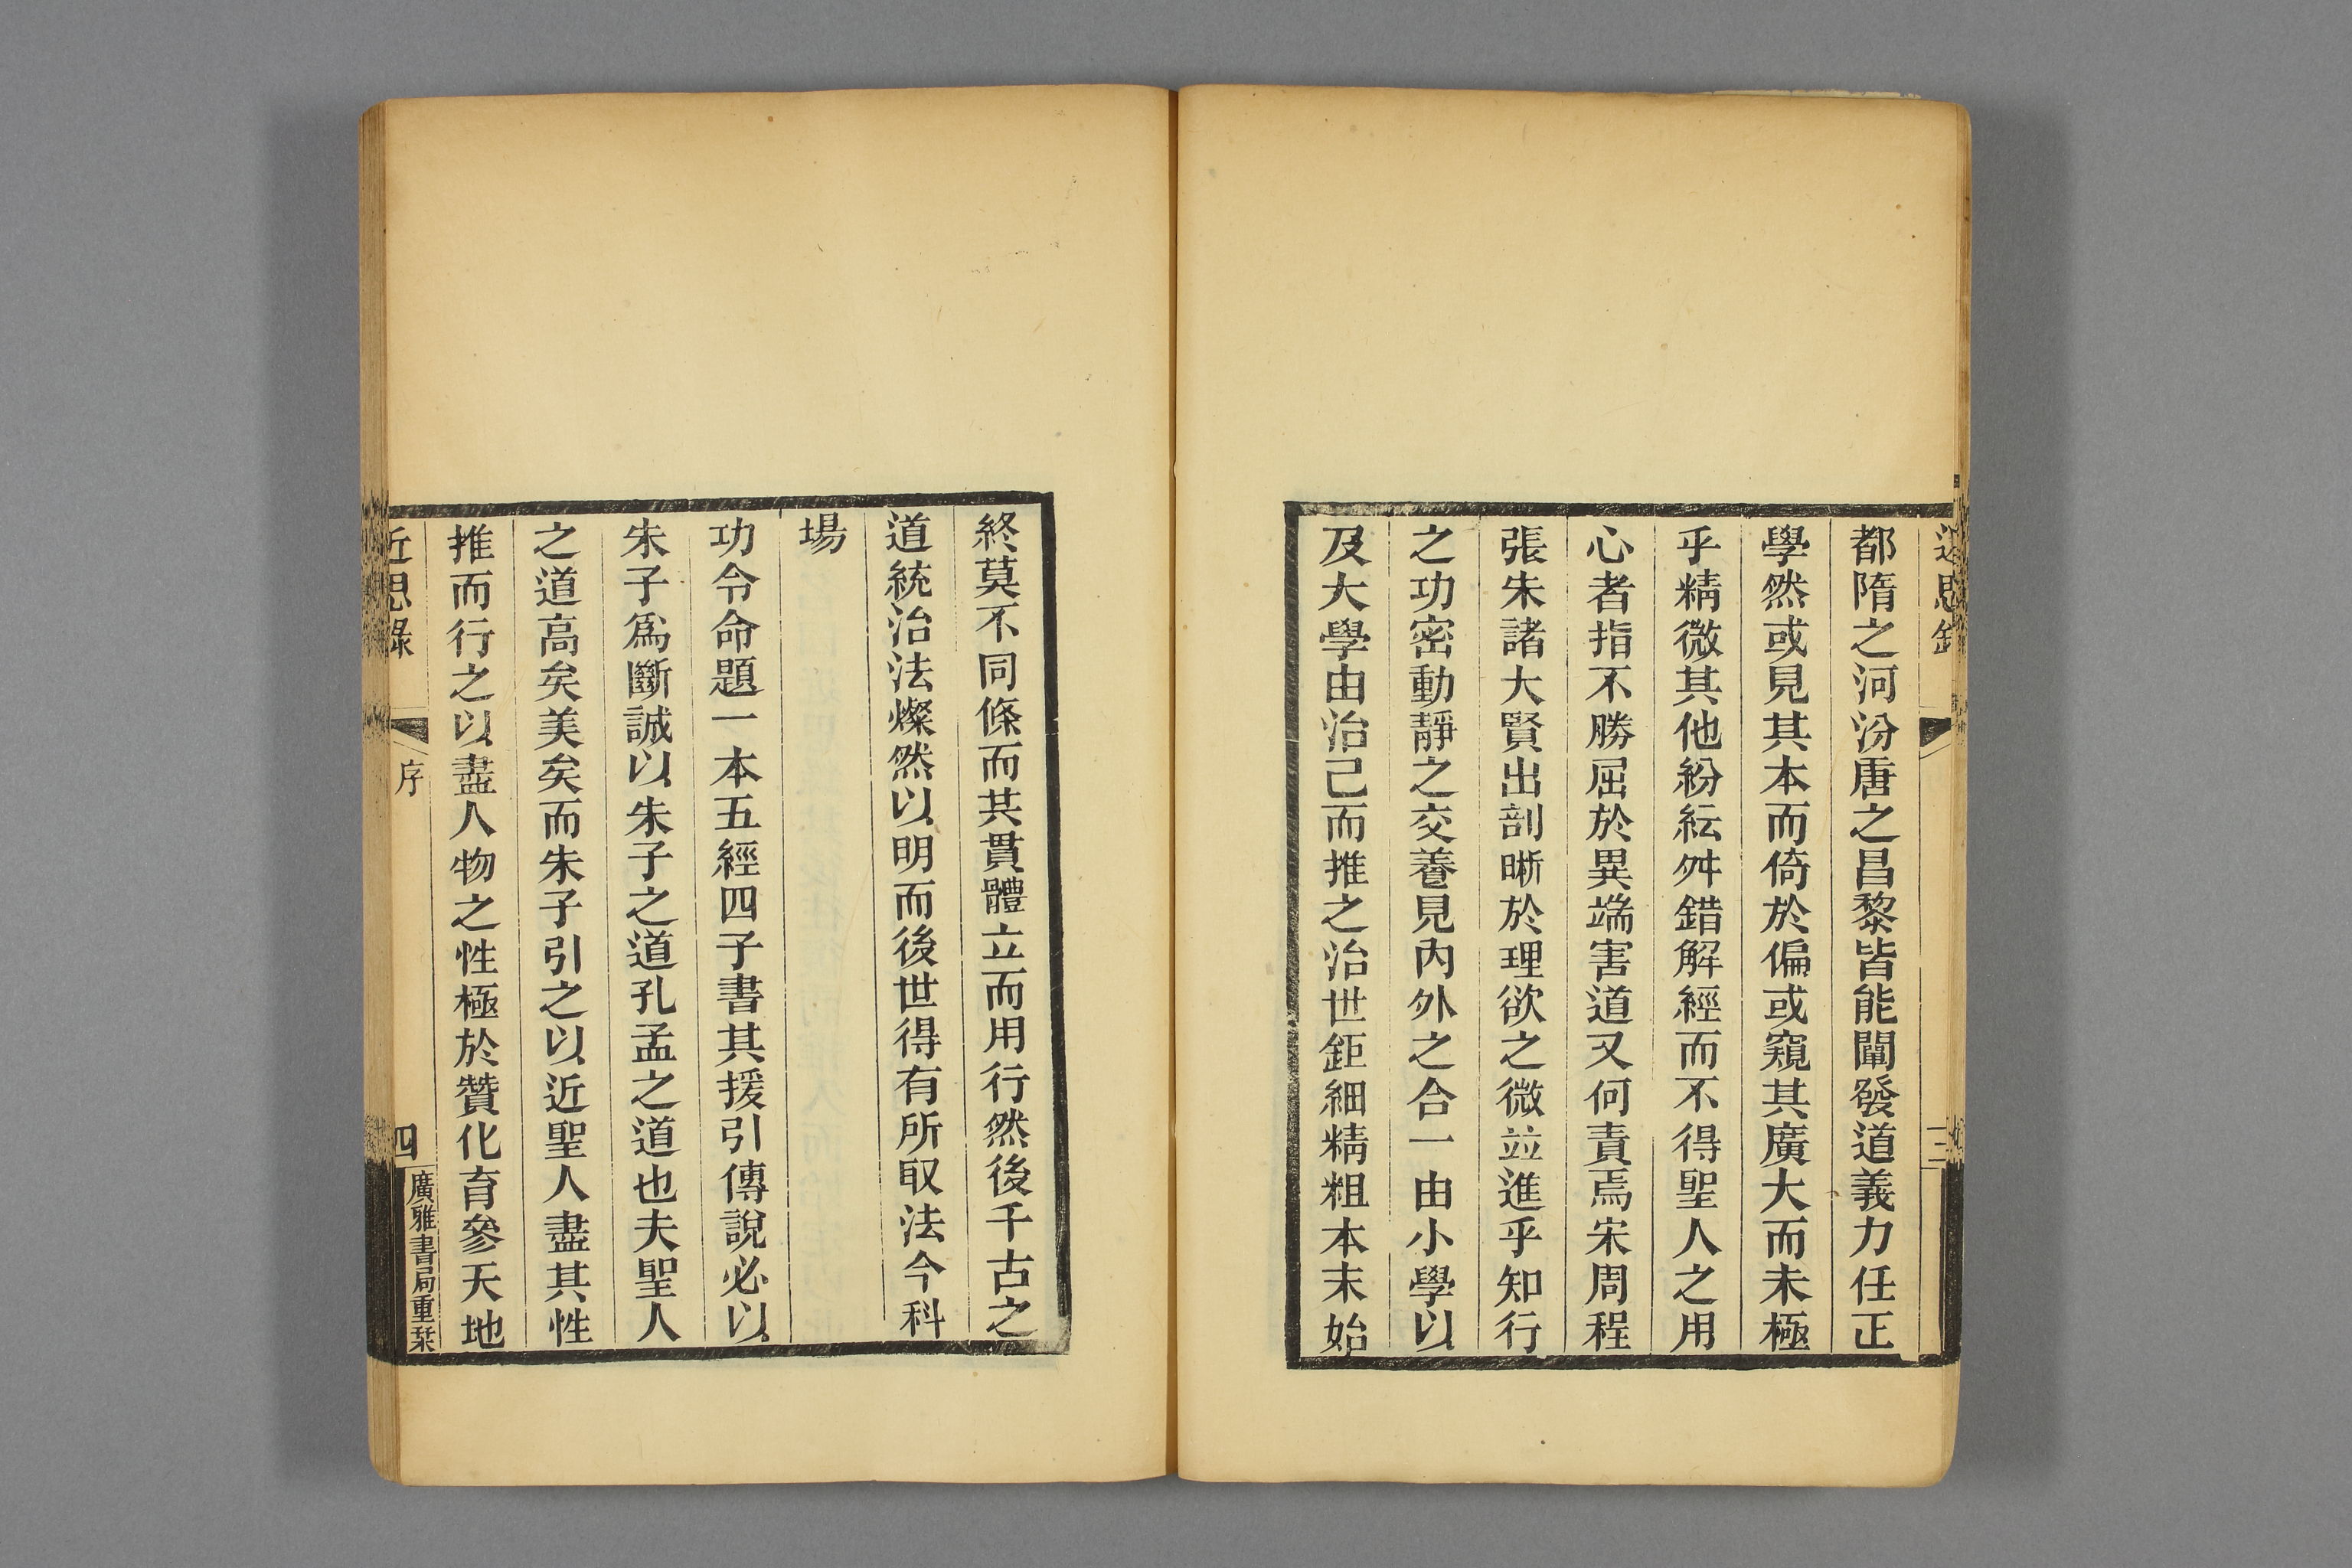 近思錄
三
都隋之河汾唐之昌黎皆能闡發道義力任正
學然或見其本而倚於偏或窺其廣大而未極
乎精微其他紛紜舛錯解經而不得聖人之用
心者指不勝屈於異端害道又何責焉宋周程
張朱諸大賢出剖晰於理欲之微並進乎知行
之功密動靜之交養見內外之合一由小學以
及大學由治己而推之治世鉅細精粗本末始
終莫不同條而共貫體立而用行然後千古之
道統治法燦然以明而後世得有所取法今科
場
功令命題一本五經四子書其援引傳說必以
朱子爲斷誠以朱子之道孔孟之道也夫聖人
之道高矣美矣而朱子引之以近聖人盡其性
推而行之以盡人物之性極於贊化育參天地
近思錄
序
四
廣雅書局重栞